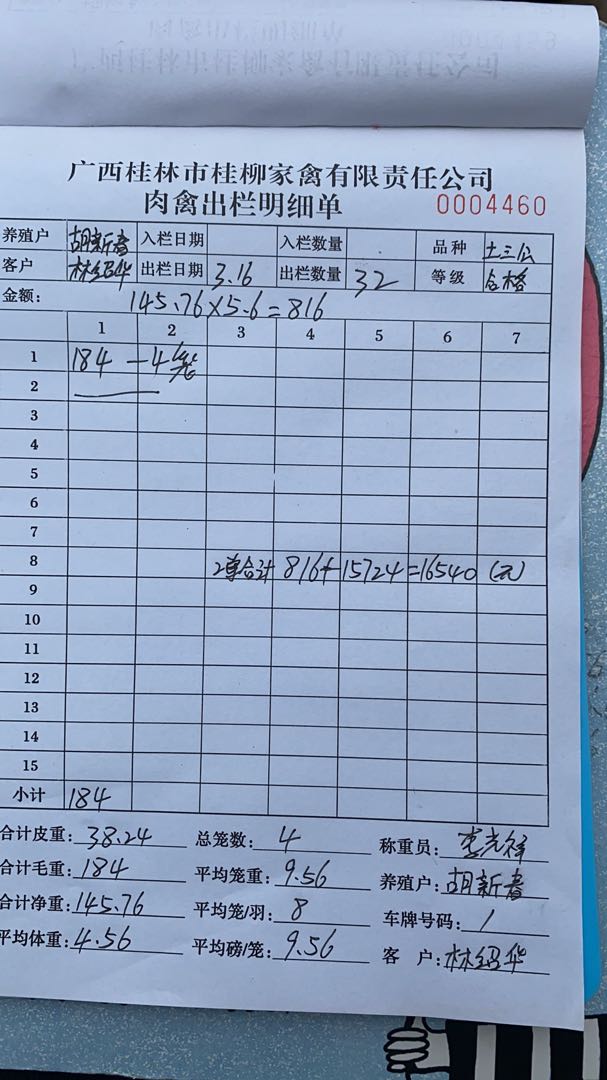 广西桂林市桂柳家禽有限责任公司
肉禽出栏明细单 0004460
养殖户 胡新春 入栏日期 入栏数量 品种 土三公
客户 林绍华 出栏日期 3.16 出栏数量 32 等级 合格
金额: 145.76×5.6=816
1 2 3 4 5 6 7
1 184 — 4笼
2
3
4
5
6
7
8 2单合计 816+15724=16540 (元)
9
10
11
12
13
14
15
小计 184
合计皮重: 38.24 总笼数: 4 称重员: 李光祥
合计毛重: 184 平均笼重: 9.56 养殖户: 胡新春
合计净重: 145.76 平均笼/羽: 8 车牌号码: /
平均体重: 4.56 平均磅/笼: 9.56 客 户: 林绍华